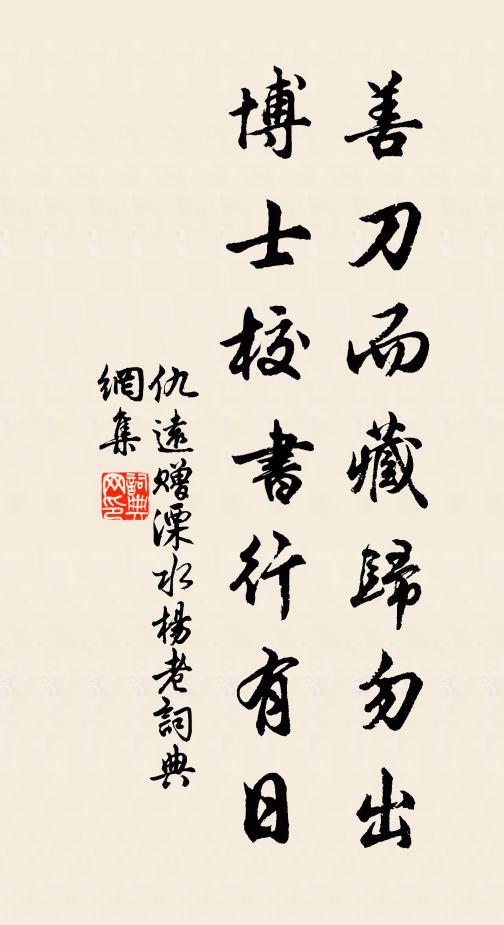 善刀而藏歸勿出
博士校書行有日
仇遠贈溧水楊老詞典
網集
詞典
网印